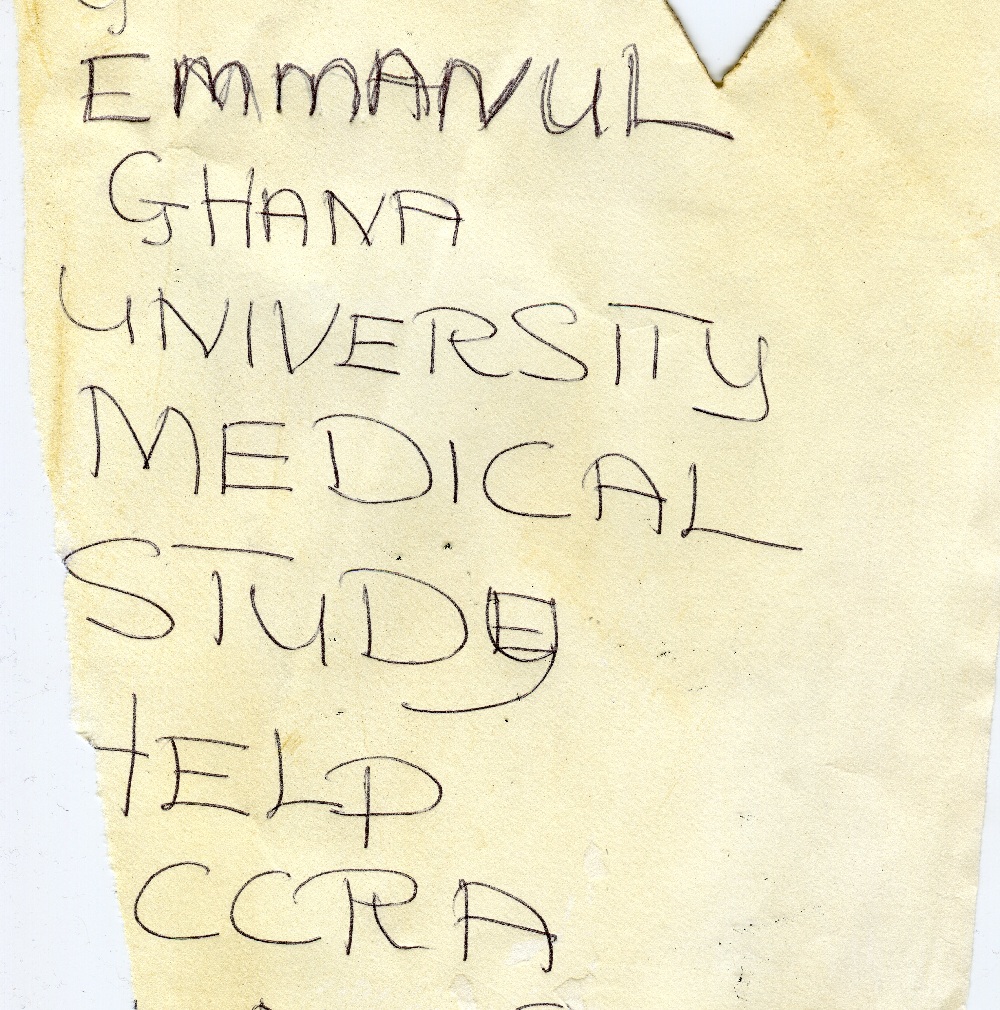 EMMANUL
GHANA
UNIVERSITY
MEDICAL
STUDY
HELP
CCRA